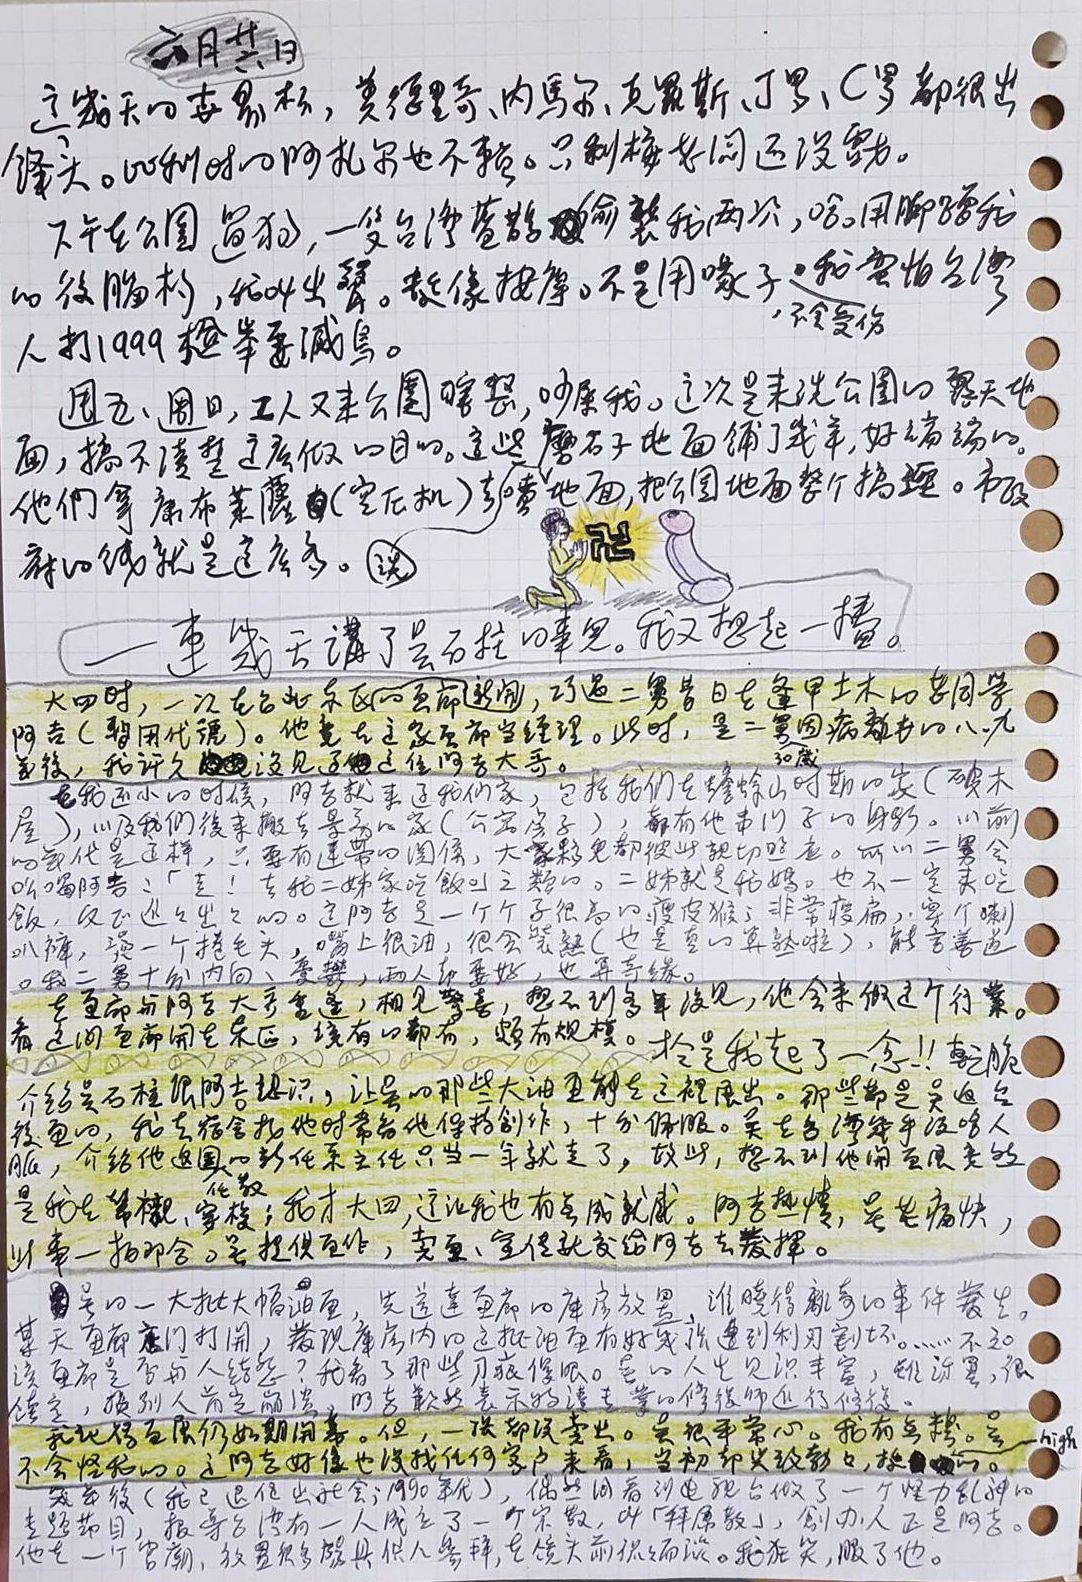 六月廿六日
这幾天的世界杯，姜伯里奇、内馬尔、克羅斯、J罗、C罗都很出
鋒头。比利时的阿扎尔也不賴。只剩梅老闆还没發力。
下午去公園遛狗，一隻台灣藍鵲偷襲我两次，哈。用脚蹬我
的後腦杓，我叫出聲。挺像按摩。不是用喙子，我蠻怕台灣
，不会受伤
人打1999檢举要滅鳥。
週五、週日，工人又来公園瞎整，吵死我。这次是来洗公園的露天地
面，搞不清楚这么做的目的。這些磨石子地面鋪了幾年，好端端的。
他們拿康布萊薩（空压机）噴地面，把公園地面整个搞濕。市政
府的钱就是这么多。
洗
一連幾天講了吳石柱的事兒。我又想起一樁。
大四时，一次在台北东区的画廊閒逛，巧遇二舅昔日在逢甲土木的老同学
阿吉（暫用代號）。他竟在这家画廊当经理。此时，是二舅因病離去的八、九
30歲
年後，我許久没見过这位阿吉大哥。
在我还小的时候，阿吉就来过我们家，包括我们在蟾蜍山时期的家（破木
屋），以及我們後来搬去景美的家（公寓房子），都有他串门子的身影。以前
的年代是这样，只要有連帶的関係，大夥兒都彼此親切照应。所以二舅会
吆喝阿吉：「走！去我二姊家吃飯」之類的。二姊就是我媽。也不一定来吃
飯，反正進進出出的。这阿吉是一个个子很高的瘦皮猴；非常瘦扁，穿个喇
叭褲，燙一个捲毛头，嘴上很油，很会裝熟（也是真的算熟啦），能言善道
。我二舅十分内向、憂鬱，两人却要好，也算奇緣。
在画廊与阿吉大哥重逢，相見驚喜，想不到多年没見，他会来做这个行業。
看这间画廊開在东区，該有的都有，頗有規模。於是我起了一念!! 乾脆
介绍吳石柱跟阿吉認识，让吳的那些大油画能在这裡展出。那些都是吳返台
後画的，我去宿舍找他时常看他保持創作，十分佩服。吳在台灣幾乎没啥人
脈，介绍他返國的新任系主任只当一年就走了，故此，想不到他開画展竟然
任教
是我在幫襯、穿梭；我才大四，这让我也有点成就感。阿吉热情，吳老痛快，
此事一拍即合。吳提供画作，賣画、宣传就交给阿吉去發揮。
吳的一大批大幅油画，先送達画廊的庫房放置，谁曉得離奇的事件發生。
某天画廊开门打開，發現庫房内的这批油画有好幾張遭到利刃割坏。……不知
该画廊是否与人结怨？我看了那些刀痕傻眼。吳的人生见识丰富，雖訝異，很
鎮定，換别人肯定崩潰，阿吉歉然表示将请專業的修復师進行修復。
我記得画展仍如期開幕。但，一張都没賣出。吳很平常心。我有点糗。吳
high
不会怪我的。这阿吉好像也没找任何客户来看，当初却兴致勃勃，挺的。
幾年後（我已退伍出社会；1990年代），偶然间看到电視台做了一个怪力乱神的
专題节目，报导台湾有一人成立了一个宗教，叫「拜屌教」，創办人正是阿吉。
他在一个宫廟，放置很多陽具供人参拜，在镜头前侃侃而談。我狂笑，服了他。